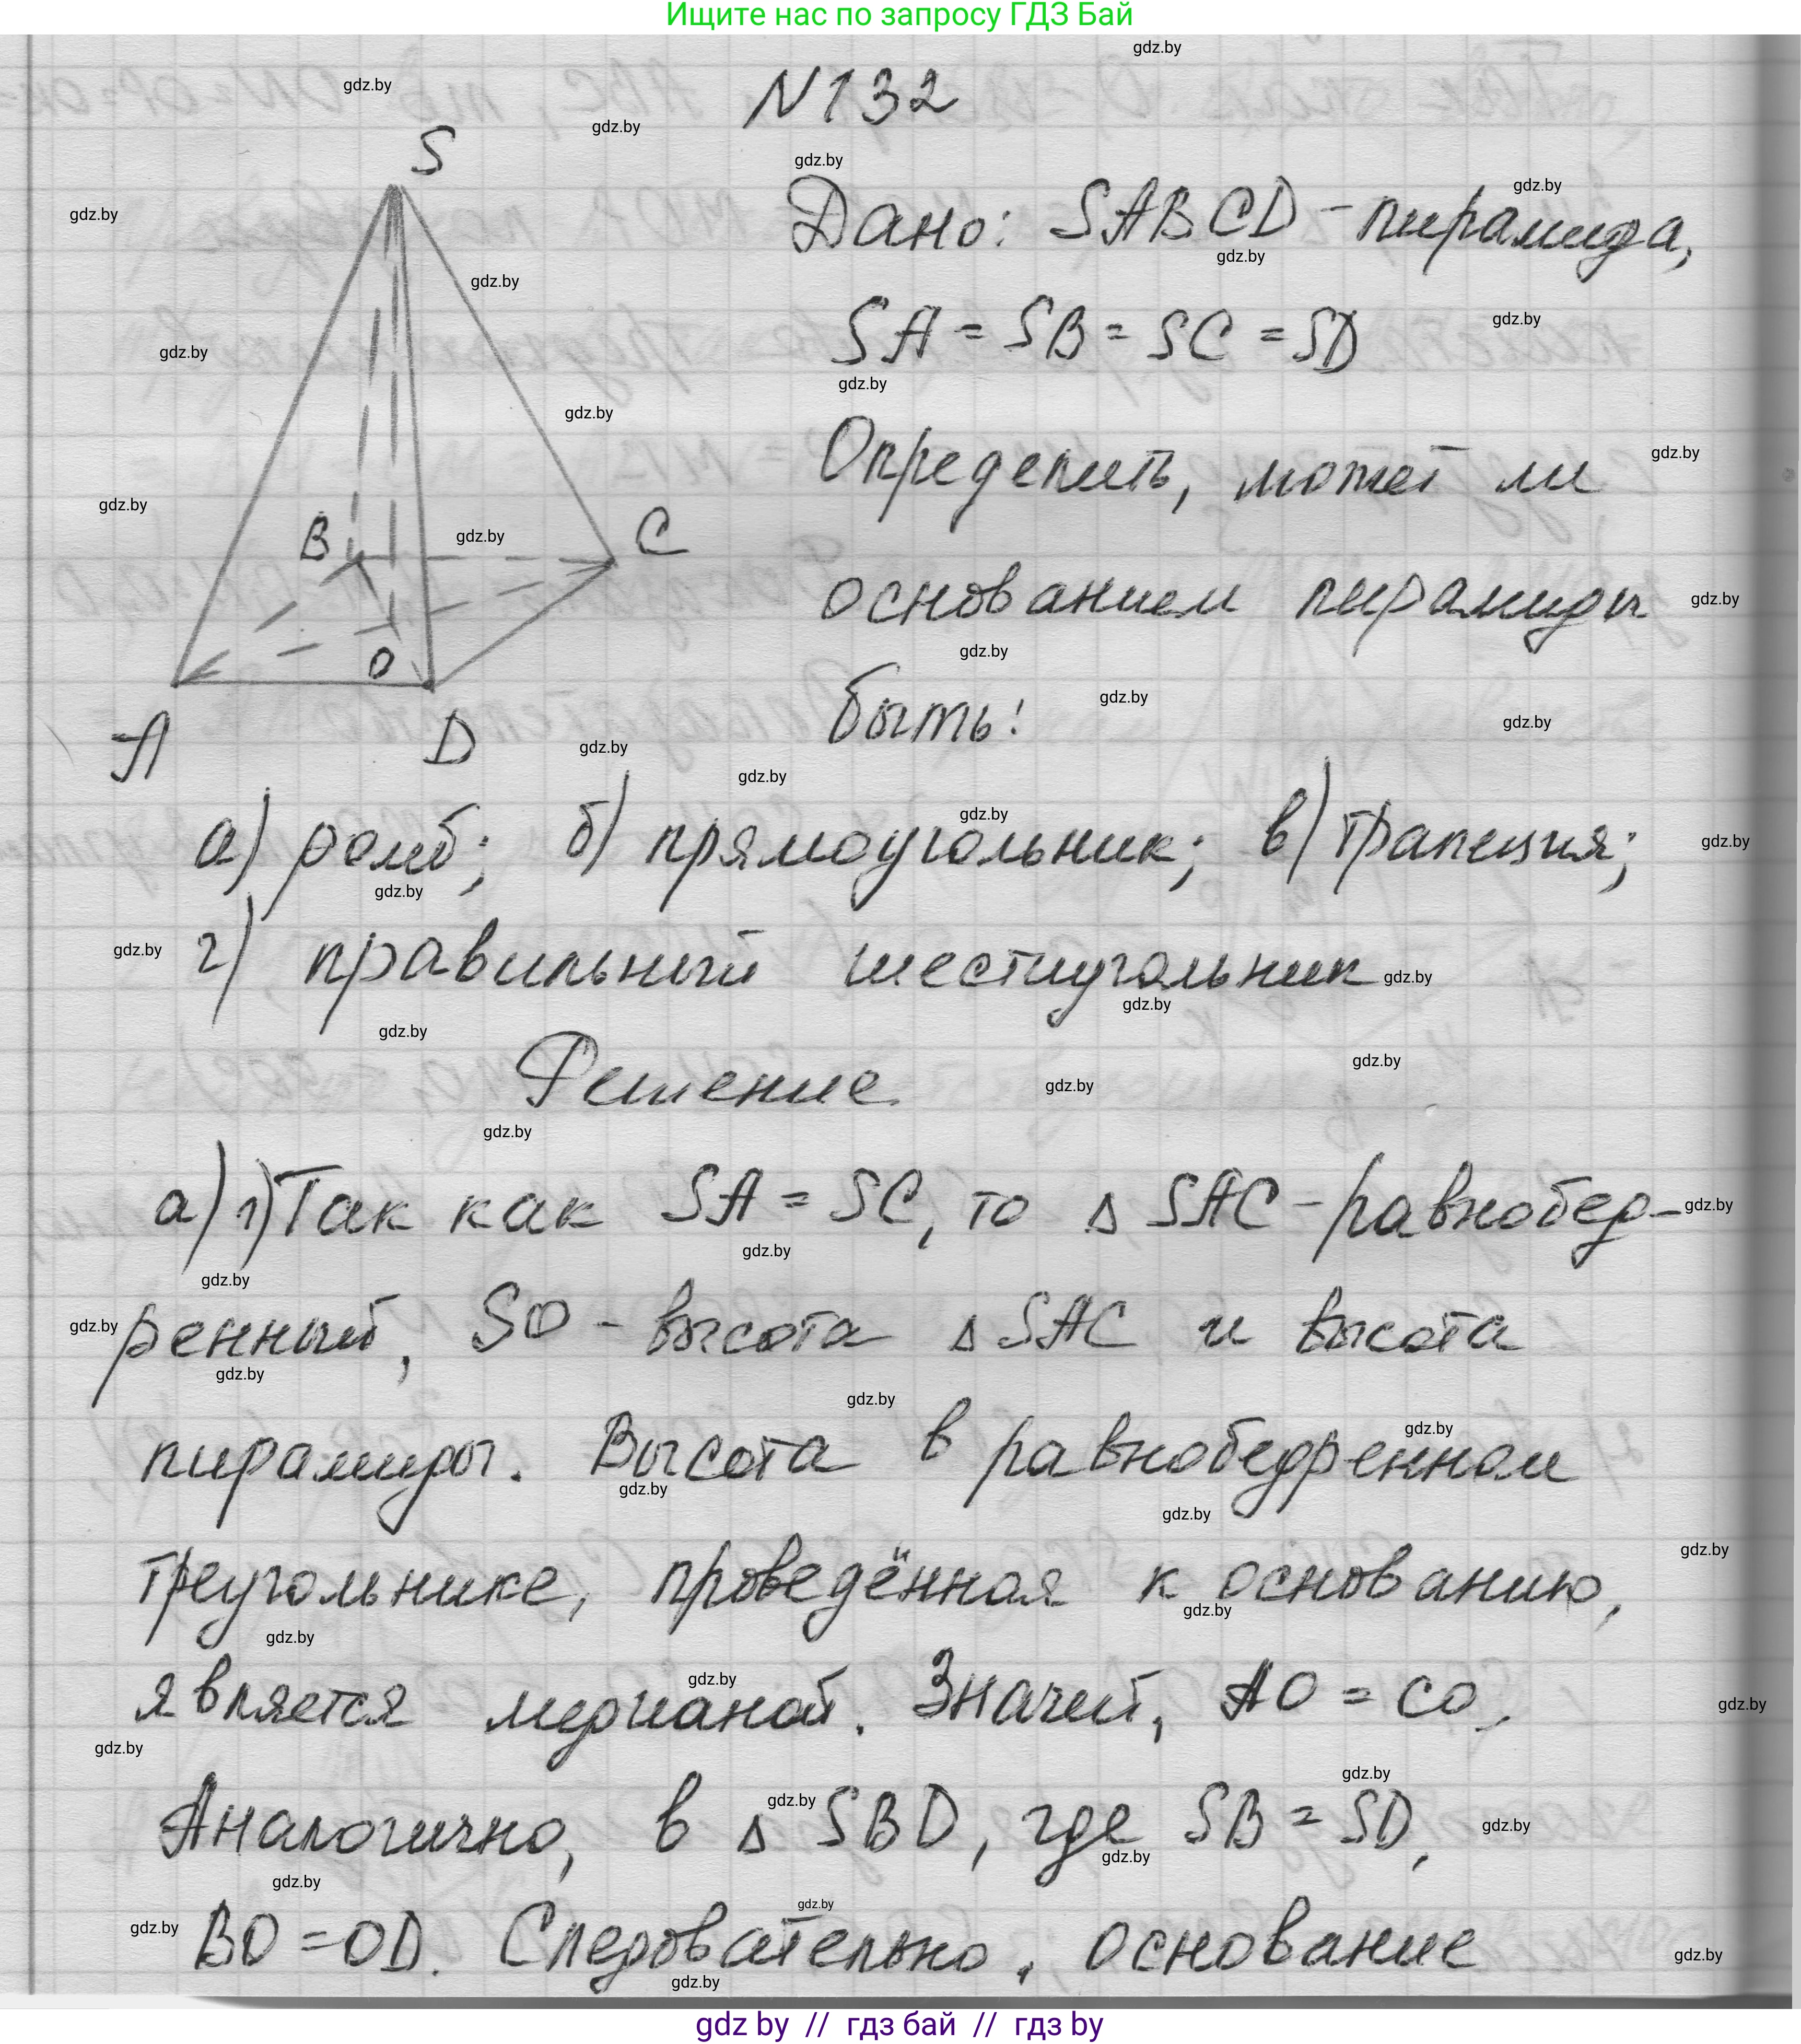 Ищите нас по запросу ГДЗ Бай
N132
S
Дано: SABCD - пирамида,
SA = SB = SC = SD
Определить, может ли
B
C
основанием пирамиды
O
быть:
A
D
а) ромб; б) прямоугольник; в) трапеция;
г) правильный шестиугольник
Решение.
а) 1) Так как SA = SC, то Δ SAC - равнобед-
ренный, SO - высота Δ SAC и высота
пирамиды. Высота в равнобедренном
треугольнике, проведённая к основанию,
является медианой. Значит, AO = CO.
Аналогично, в Δ SBD, где SB = SD,
BO = OD. Следовательно, основание
gdz by // гдз бай // гдз by
gdz.by